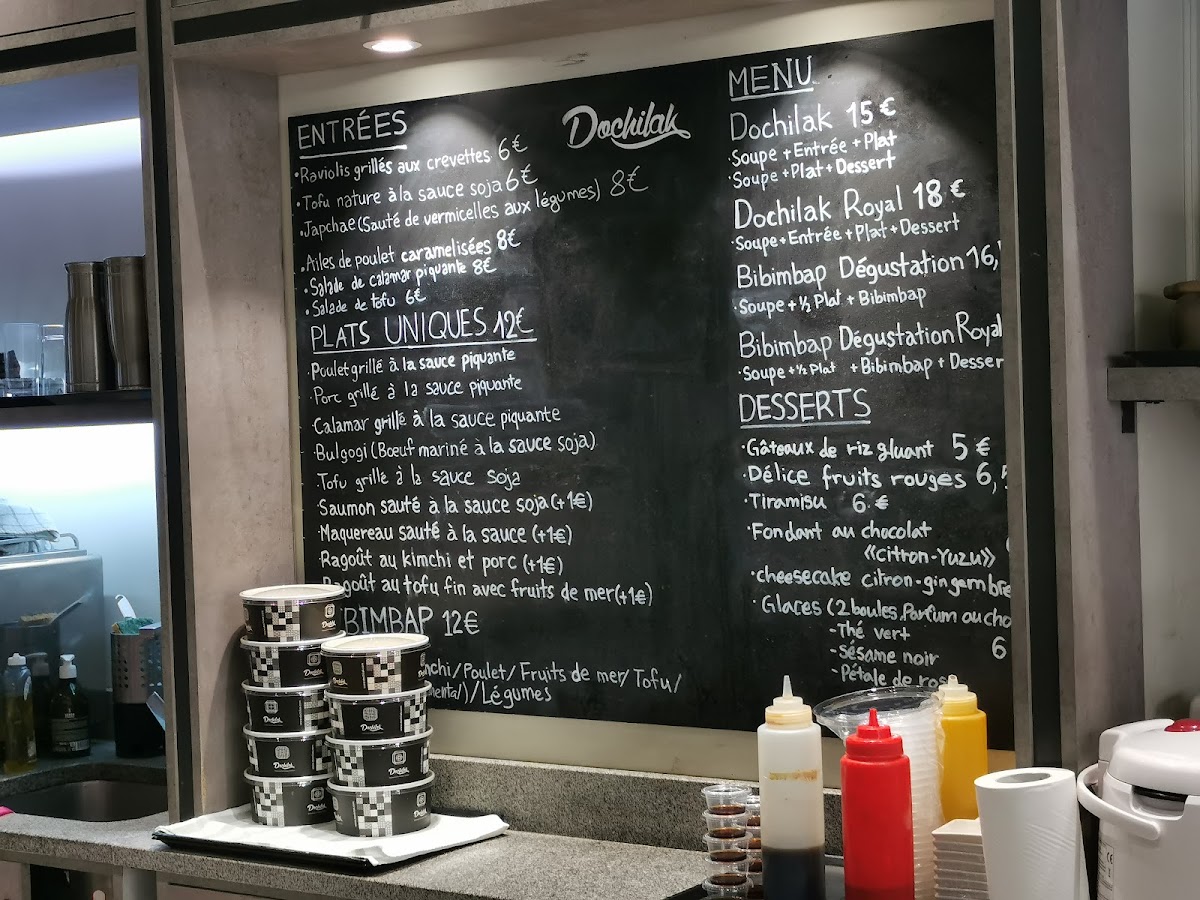 Dochilak
ENTRÉES
·Raviolis grillés aux crevettes 6€
·Tofu nature à la sauce soja 6€
·Japchae (Sauté de vermicelles aux légumes) 8€
·Ailes de poulet caramelisées 8€
·Salade de calamar piquante 8€
·Salade de tofu 6€
PLATS UNIQUES 12€
·Poulet grillé à la sauce piquante
·Porc grillé à la sauce piquante
·Calamar grillé à la sauce piquante
·Bulgogi (Bœuf mariné à la sauce soja)
·Tofu grille à la sauce soja
·Saumon sauté à la sauce soja (+1€)
·Maquereau sauté à la sauce (+1€)
·Ragoût au kimchi et porc (+1€)
Ragoût au tofu fin avec fruits de mer (+1€)
BIMBAP 12€
nchi/Poulet/Fruits de mer/Tofu/
mental)/Légumes
MENU
Dochilak 15€
·Soupe+Entrée+Plat
·Soupe+Plat+Dessert
Dochilak Royal 18€
·Soupe+Entrée+Plat+Dessert
Bibimbap Dégustation 16,
·Soupe+½ Plat + Bibimbap
Bibimbap Dégustation Royal
·Soupe+½ Plat + Bibimbap + Desser
DESSERTS
·Gâteaux de riz gluant 5€
·Délice fruits rouges 6,5
·Tiramisu 6€
·Fondant au chocolat
«citron-Yuzu»
·cheesecake citron-gingembre
·Glaces (2 boules, Parfum au cho
-Thé vert
-Sésame noir 6
-Pétale de rose
Dochilak
Dochilak
Dochilak
Dochilak
Dochilak
Dochilak
Dochilak
Dochilak